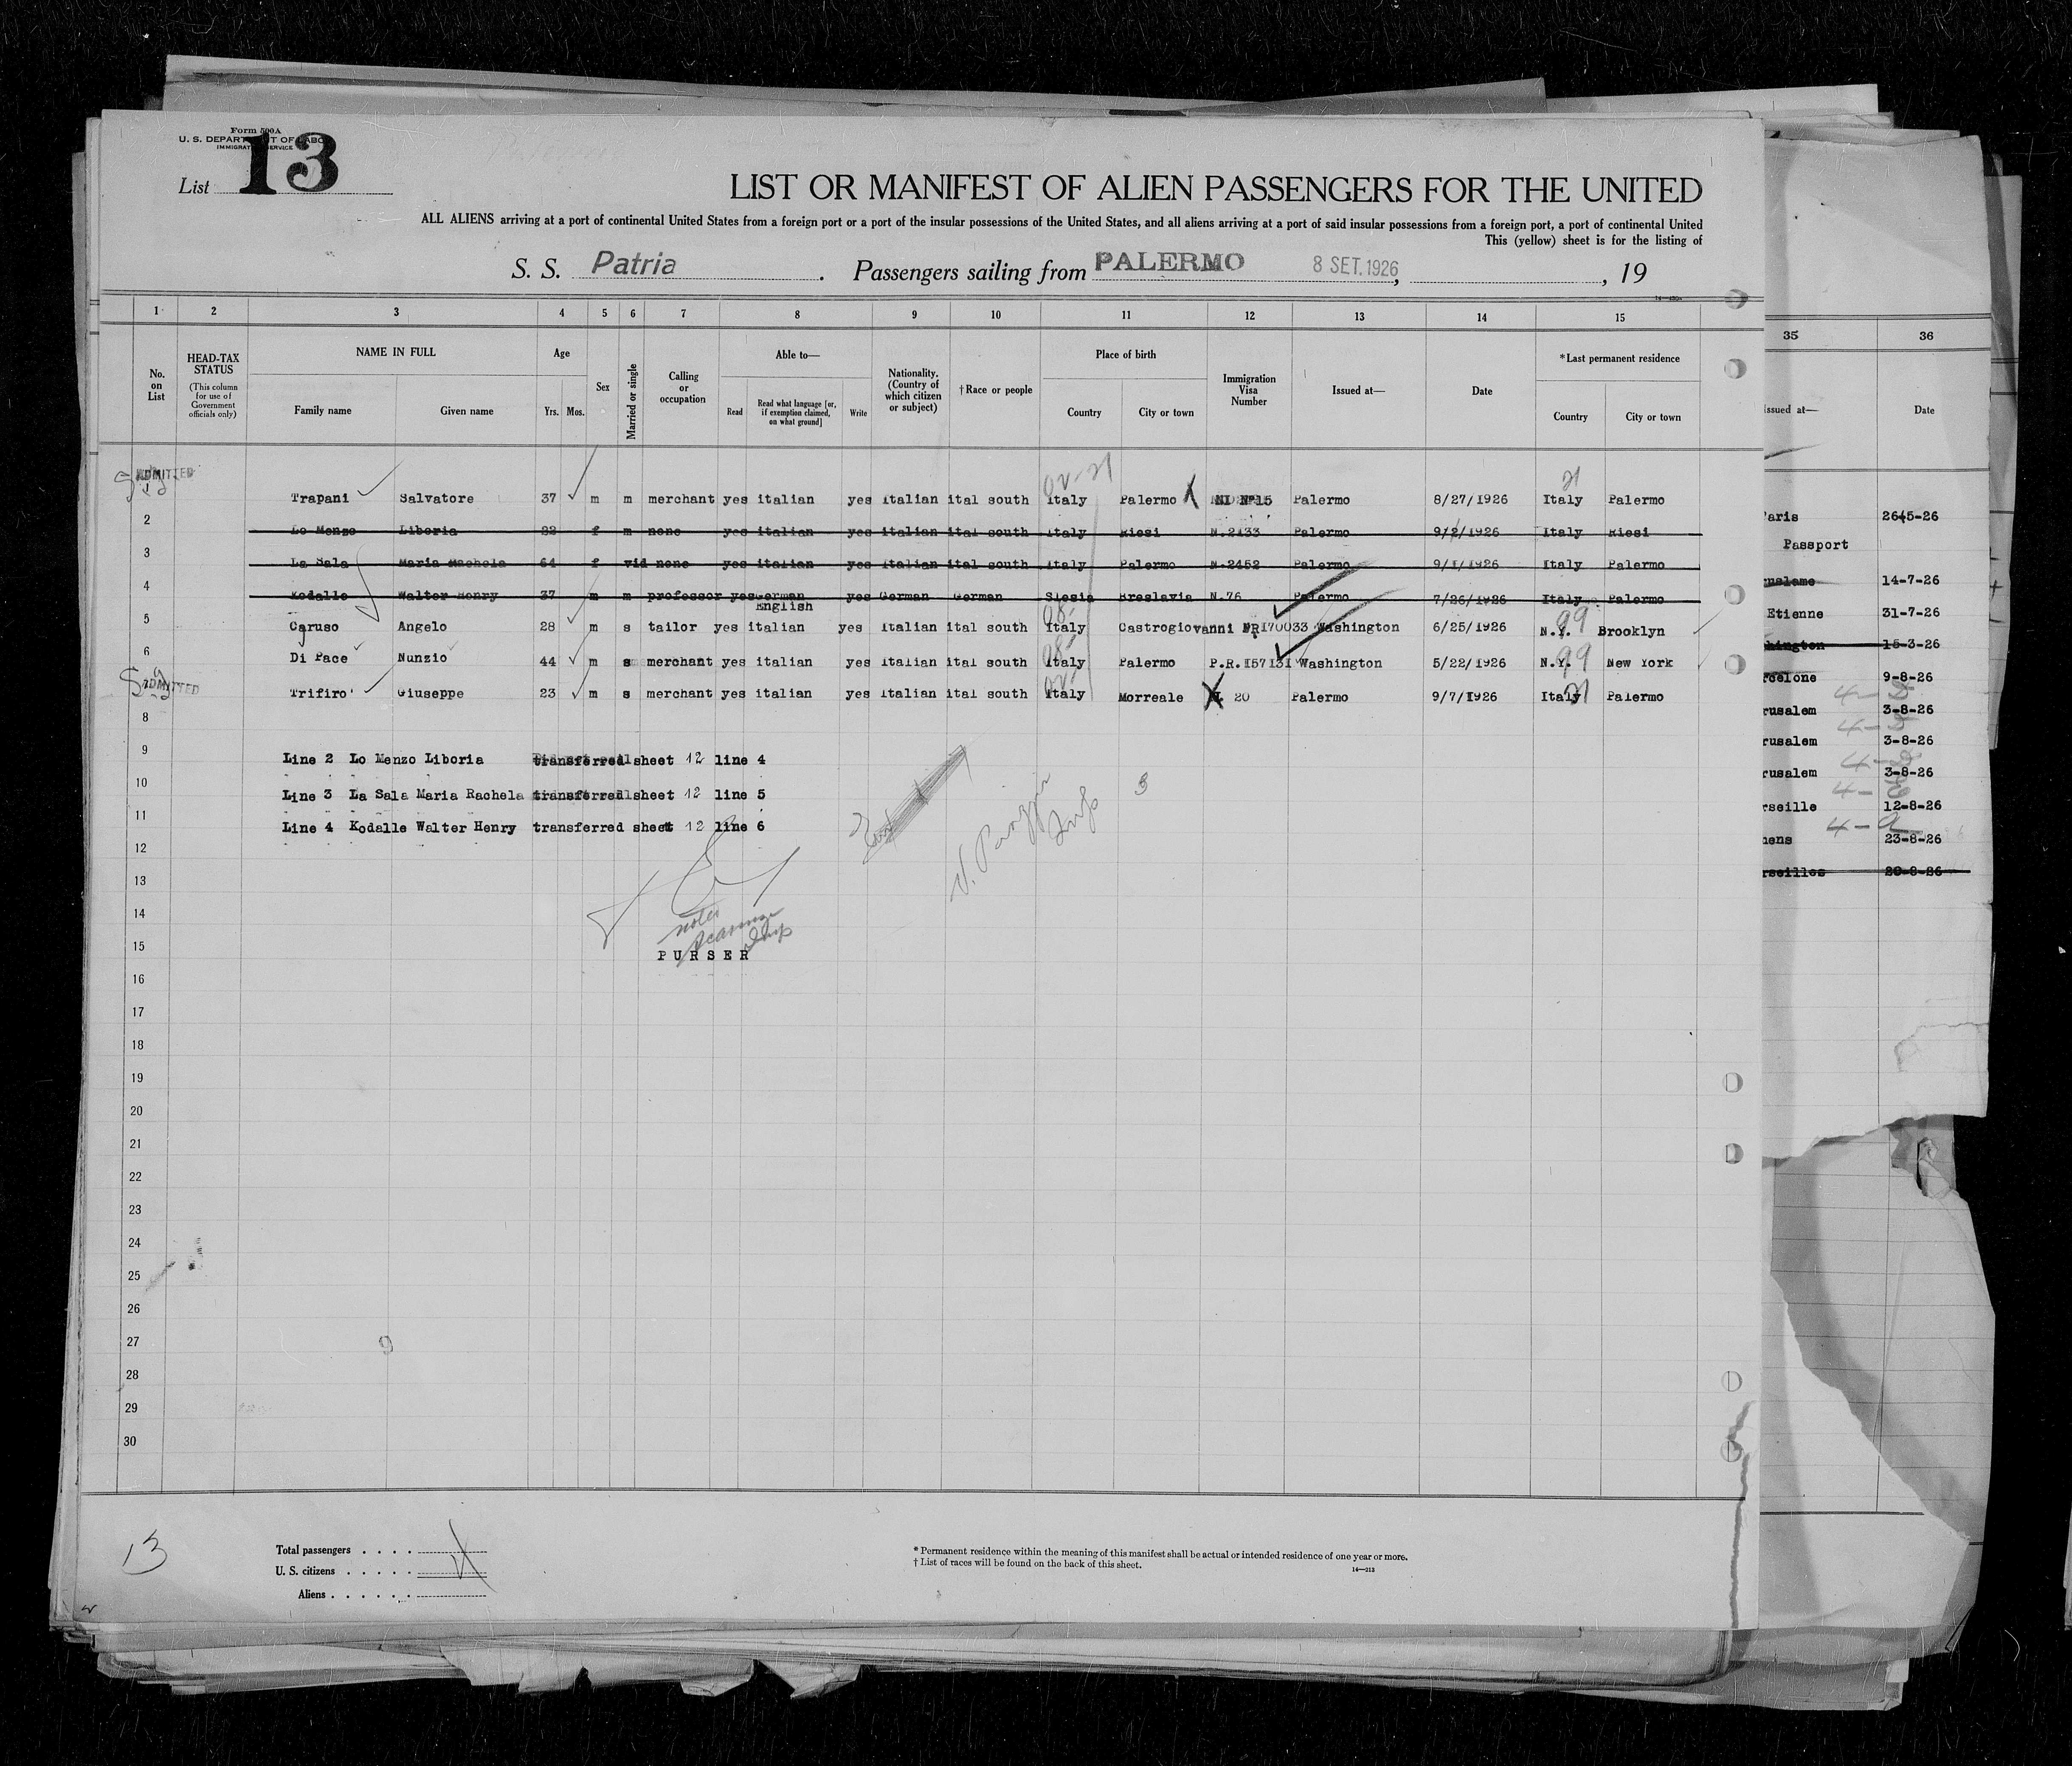 Form 500A
U. S. DEPARTMENT OF LABOR
IMMIGRATION SERVICE
List 13
LIST OR MANIFEST OF ALIEN PASSENGERS FOR THE UNITED
ALL ALIENS arriving at a port of continental United States from a foreign port or a port of the insular possessions of the United States, and all aliens arriving at a port of said insular possessions from a foreign port, a port of continental United
This (yellow) sheet is for the listing of
S. S. Patria. Passengers sailing from PALERMO 8 SET. 1926, , 19
1 2 3 4 5 6 7 8 9 10 11 12 13 14 15
No. on List
HEAD-TAX STATUS
(This column for use of Government officials only)
NAME IN FULL
Family name Given name
Age
Yrs. Mos.
Sex
Married or single
Calling or occupation
Able to—
Read Read what language [or, if exemption claimed, on what ground] Write
Nationality. (Country of which citizen or subject)
†Race or people
Place of birth
Country City or town
Immigration Visa Number
Issued at—
Date
*Last permanent residence
Country City or town
35 36
Issued at— Date
ADMITTED
02-21 21
1 Trapani Salvatore 37 m m merchant yes italian yes Italian ital south Italy Palermo NI Nº15 Palermo 8/27/1926 Italy Palermo
2 Lo Menzo Liboria 22 f m none yes italian yes italian ital south Italy Riesi N.2133 Palermo 9/2/1926 Italy Riesi
3 La Sala Maria Rachela 64 f vid none yes italian yes Italian ital south Italy Palermo N.2452 Palermo 9/1/1926 Italy Palermo
4 Kodalle Walter Henry 37 m m professor yes German yes German German Slesia Breslavia N.76 Palermo 7/26/1926 Italy Palermo
English
5 Caruso Angelo 28 m s tailor yes italian yes Italian ital south Italy Castrogiovanni PR 170033 Washington 6/25/1926 N.Y. Brooklyn
99
6 Di Pace Nunzio 44 m s merchant yes italian yes Italian ital south Italy Palermo P.R.157131 Washington 5/22/1926 N.Y. New York
99
ADMITTED
7 Trifiro' Giuseppe 23 m s merchant yes italian yes Italian ital south Italy Morreale 20 Palermo 9/7/1926 Italy Palermo
21
8
9 Line 2 Lo Menzo Liboria transferred sheet 12 line 4
10 Line 3 La Sala Maria Rachela transferred sheet 12 line 5
11 Line 4 Kodalle Walter Henry transferred sheet 12 line 6
3
12
13
14
Insp
15
PURSER
16
17
18
19
20
21
22
23
24
25
26
27
9
28
29
30
13
Total passengers
U. S. citizens
Aliens
* Permanent residence within the meaning of this manifest shall be actual or intended residence of one year or more.
† List of races will be found on the back of this sheet.
14—213
Paris 26-5-26
Passport
14-7-26
Etienne 31-7-26
15-3-26
9-8-26
rusalem 3-8-26
rusalem 3-8-26
rusalem 3-8-26
rseille 12-8-26
hens 23-8-26
rseilles 20-8-26